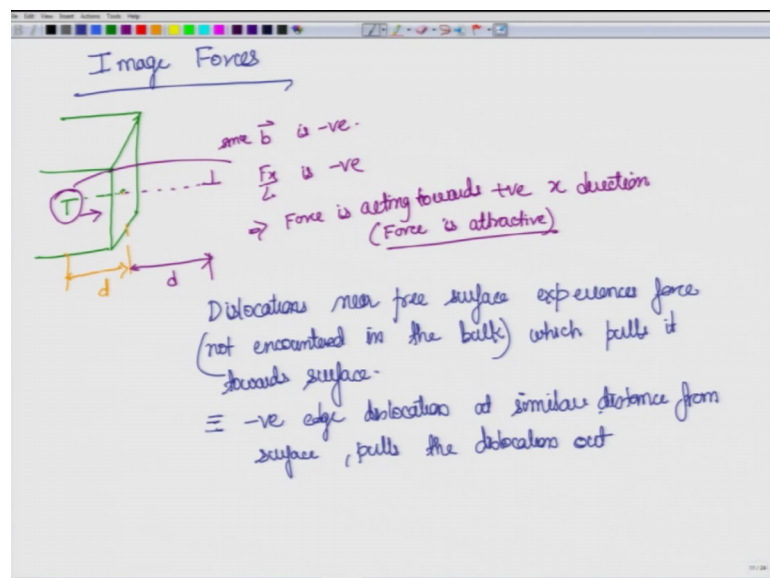 File Edit View Insert Actions Tools Help
Image Forces
since b⃗ is -ve.
Fx/L is -ve
⇒ Force is acting towards +ve x direction
(Force is attractive)
T
⊥
d
d
Dislocations near free surface experiences force
(not encountered in the bulk) which pulls it
towards surface.
≡ -ve edge dislocation at similar distance from
surface, pulls the dislocation out